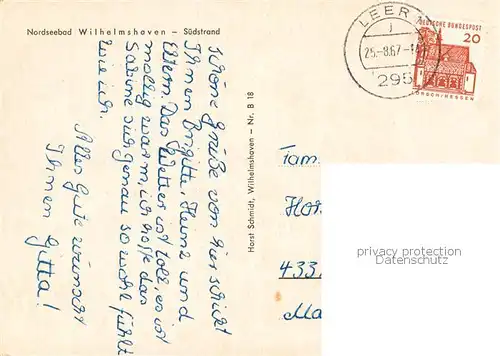 Nordseebad Wilhelmshaven – Südstrand
Schöne Grüße von hier schickt
Ihnen Brigitte, Heinz und
Eltern. Das Wetter ist toll, es ist
mollig warm, ich hoffe das
Sabine sich genau so wohl fühlt
wie ich.
Alles Gute wünscht
Ihnen Gitta!
Horst Schmidt, Wilhelmshaven – Nr. B 18
LEER
25.-8.67-
295
DEUTSCHE BUNDESPOST
20
LORSCH/HESSEN
Fam.
433
privacy protection
Datenschutz